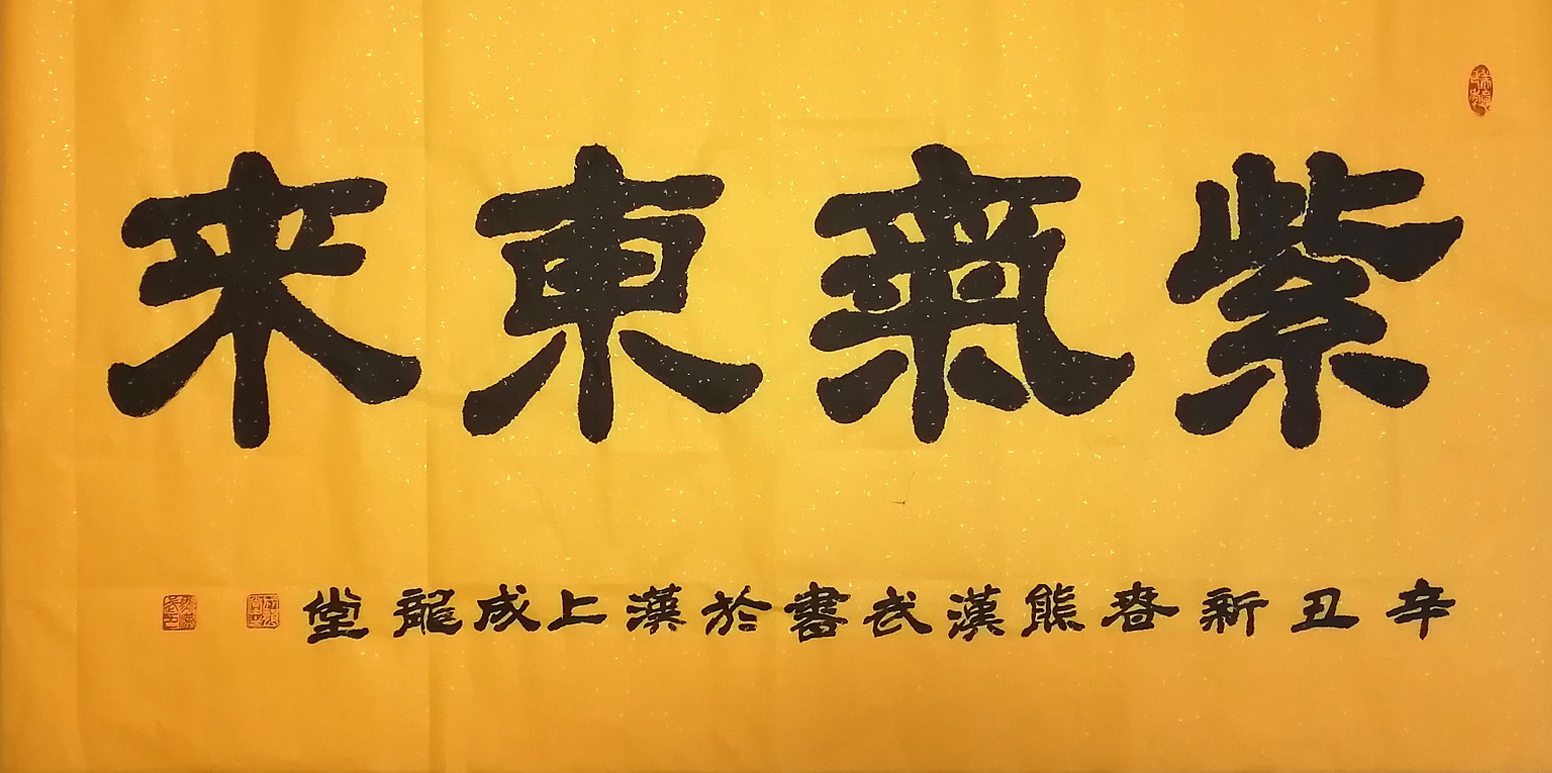 紫氣東来
辛丑新春熊漢武書於漢上成龍堂